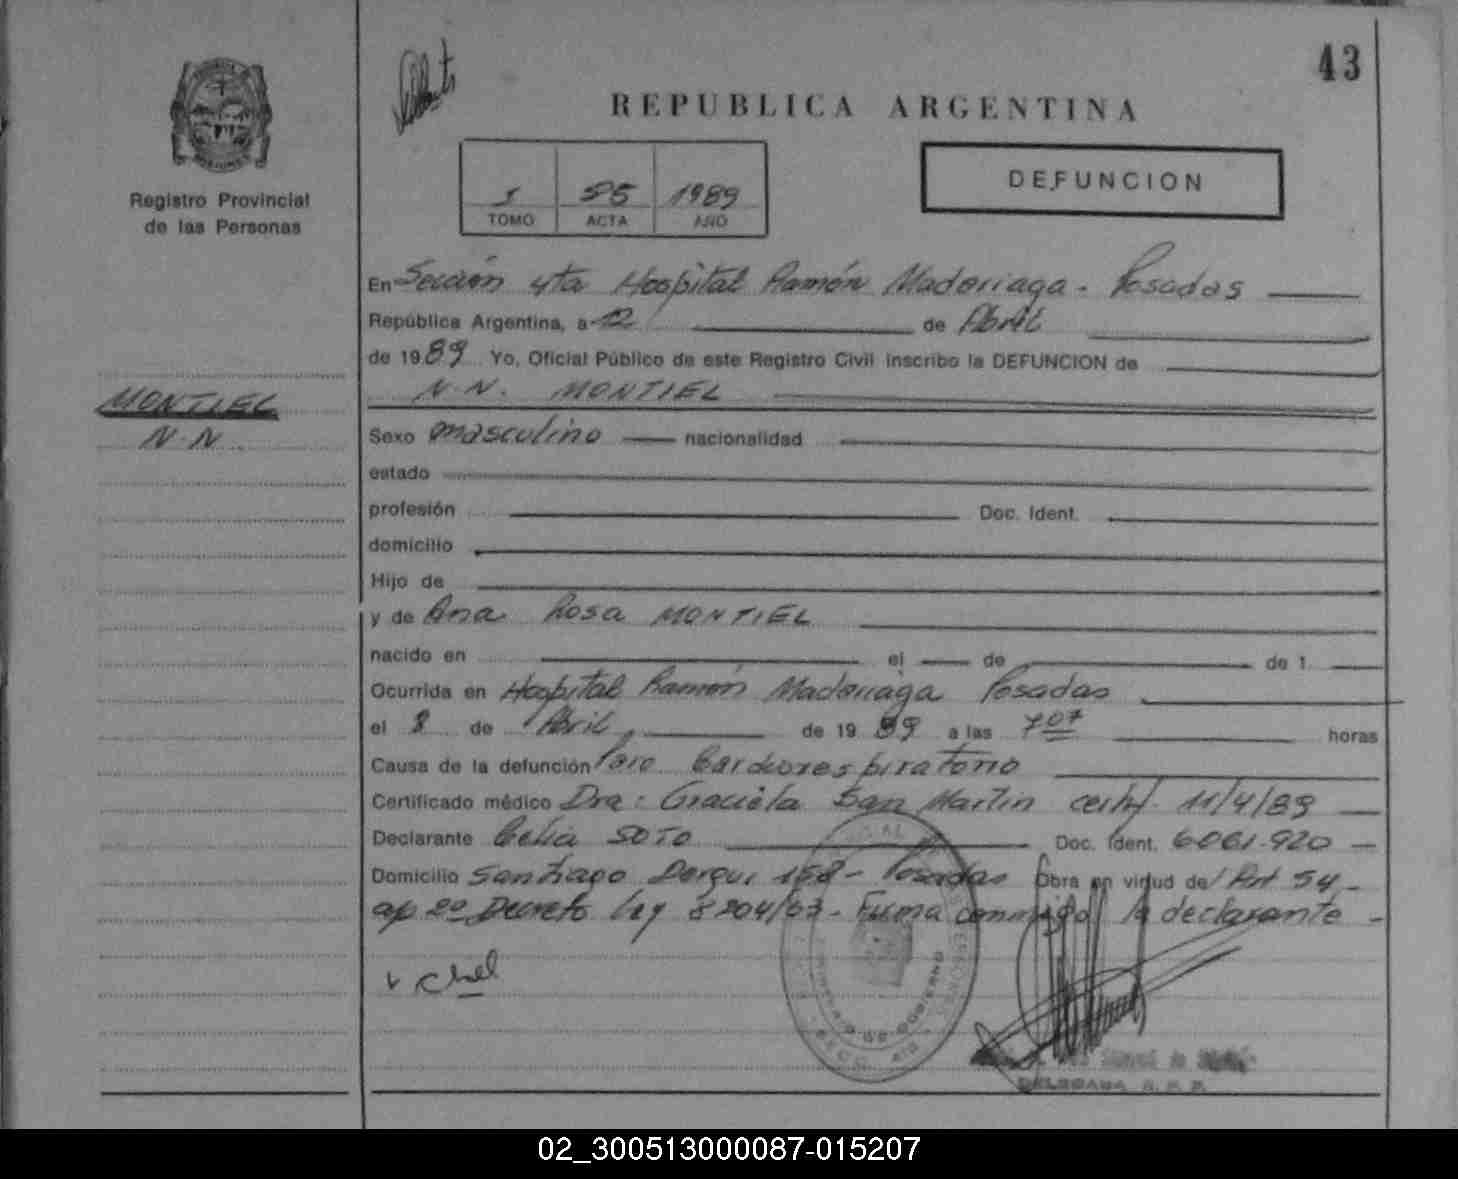 43
REPUBLICA ARGENTINA
Registro Provincial
de las Personas
1 85 1989
TOMO ACTA AÑO
DEFUNCION
En Sección 4ta Hospital Ramón Madariaga - Posadas
República Argentina, a 12 de Abril
de 1989 Yo, Oficial Público de este Registro Civil inscribo la DEFUNCION de
N.N. MONTIEL
MONTIEL
N.N.
Sexo masculino nacionalidad
estado
profesión Doc. Ident.
domicilio
Hijo de
y de Ana Rosa MONTIEL
nacido en el de de 1
Ocurrida en Hospital Ramón Madariaga Posadas
el 8 de Abril de 1989 a las 7 07 horas
Causa de la defunción Paro Cardiorespiratorio
Certificado médico Dra: Graciela San Martin certif. 11/4/89
Declarante Celia SOTO Doc. Ident. 6061.920
Domicilio Santiago Derqui 158 - Posadas Obra en virtud de Art 54 -
ap 2º Decreto Ley 8204/63 - Firma conmigo la declarante -
MINISTERIO DE GOBIERNO
DELEGADA R. P. P.
02_300513000087-015207